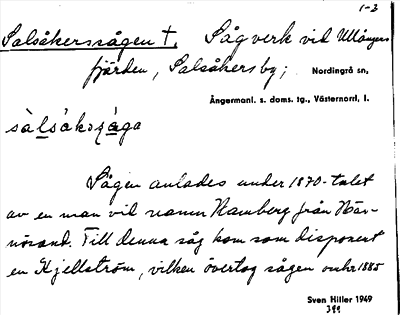 1-2
Salsåkerssågen †. Sågverk vid Ullångers
fjärden, Salsåkers by; Nordingrå sn,
Ångermanl. s. doms. tg., Västernorrl. l.
sàlsåkszåga
Sågen anlades under 1870-talet
av en man vid namn Ramberg från Här-
nösand. Till denna såg kom som disponent
en Kjellström, vilken övertog sågen omkr 1885
Sven Hiller 1949
399